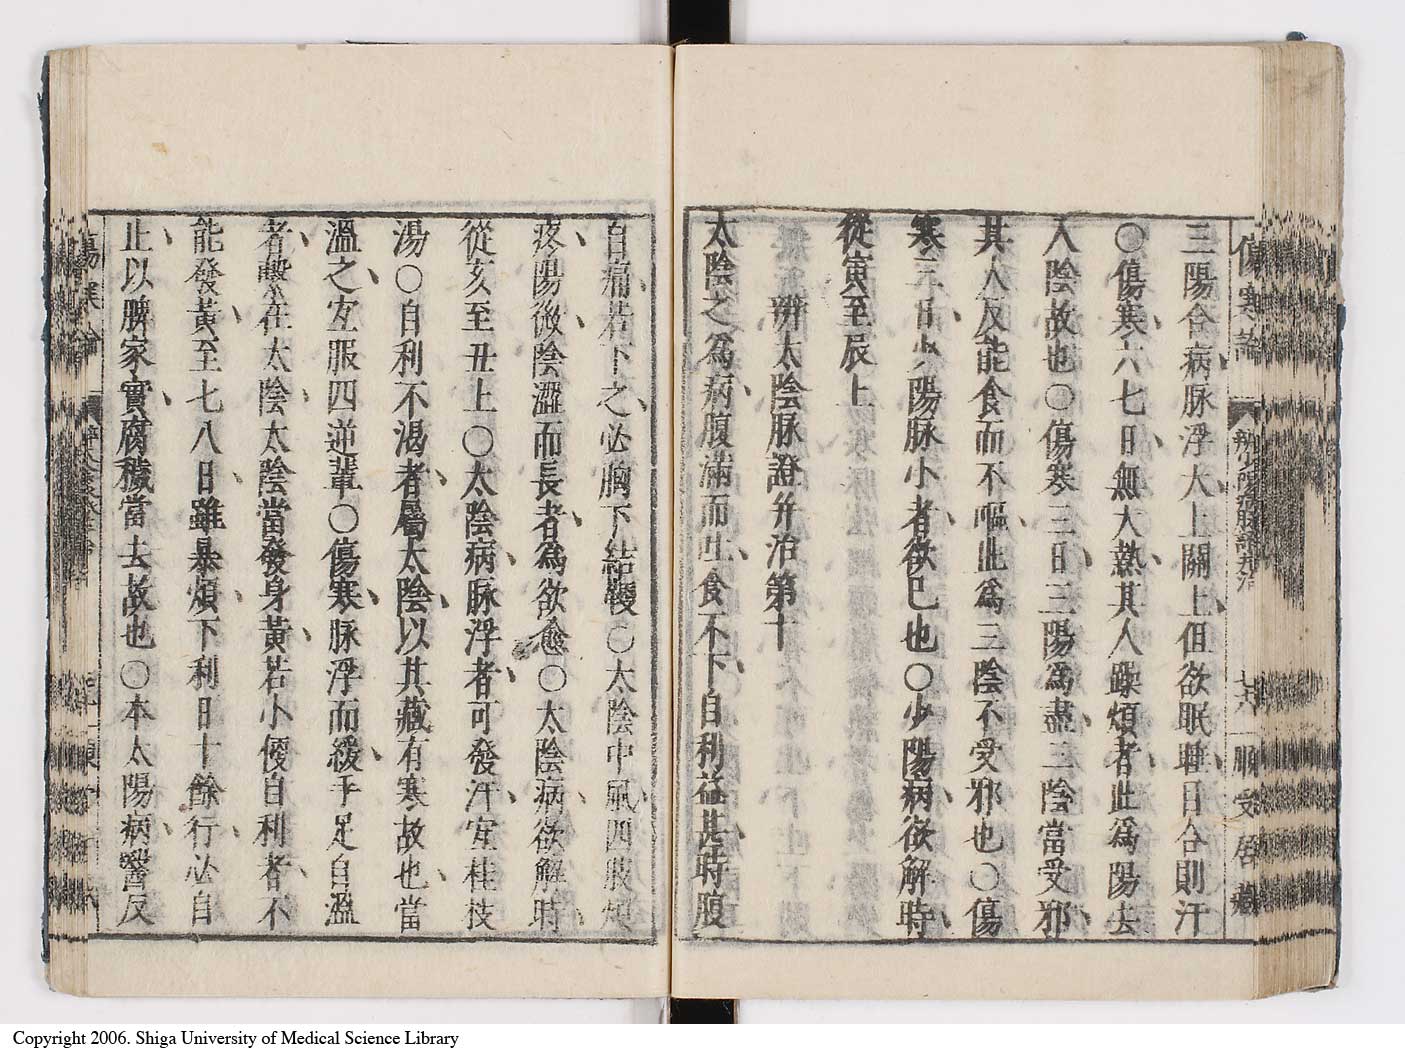 三陽合病脉浮大上關上但欲眠睡目合則汗
〇傷寒六七日無大熱其人躁煩者此爲陽去
入陰故也〇傷寒三日三陽爲盡三陰當受邪
其人反能食而不嘔此爲三陰不受邪也〇傷
寒三日少陽脉小者欲已也〇少陽病欲解時
從寅至辰上
辨太陰脉證并治第十
太陰之爲病腹滿而吐食不下自利益甚時腹
自痛若下之必胸下結鞕〇太陰中風四肢煩
疼陽微陰澀而長者爲欲愈〇太陰病欲解時
從亥至丑上〇太陰病脉浮者可發汗宜桂枝
湯〇自利不渴者屬太陰以其藏有寒故也當
溫之宜服四逆輩〇傷寒脉浮而緩手足自溫
者繫在太陰太陰當發身黃若小便自利者不
能發黃至七八日雖暴煩下利日十餘行必自
止以脾家實腐穢當去故也〇本太陽病醫反
傷寒論
辨少陽病脉證并治
順受居藏
Copyright 2006. Shiga University of Medical Science Library